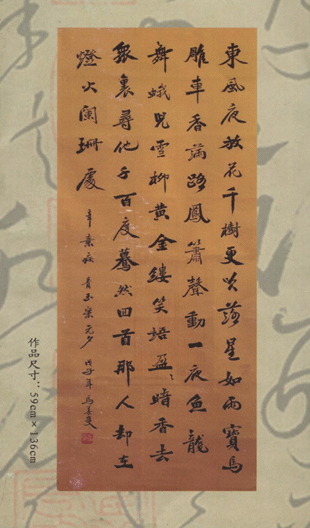 東風夜放花千樹更吹落星如雨寶馬
雕車香滿路鳳簫聲動一夜魚龍
舞蛾兒雪柳黃金縷笑語盈〻暗香去
眾裏尋他千百度驀然回首那人却在
燈火闌珊處
辛棄疾 青玉案元夕 戊子年
作品尺寸：59cm×136cm